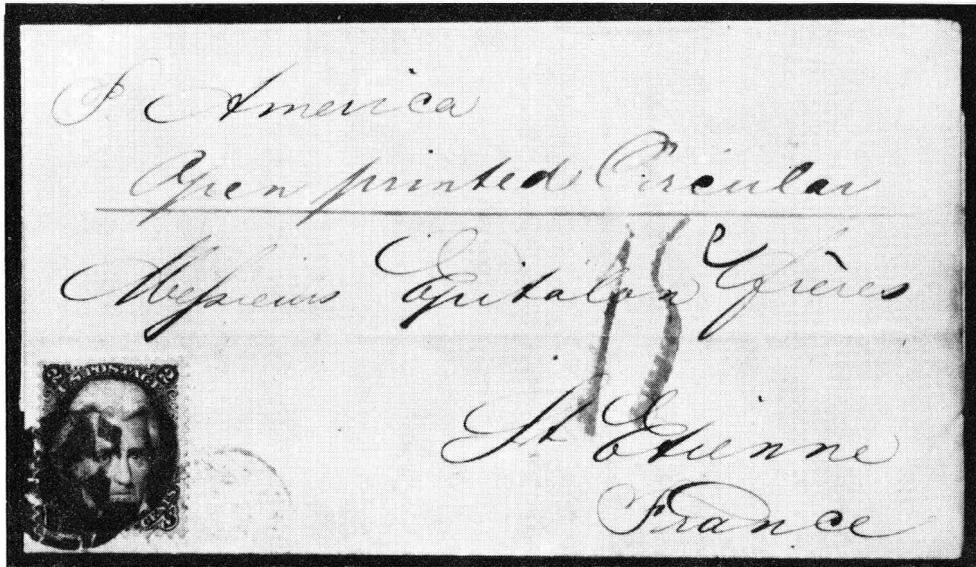 P. America
Open printed Circular
Messieurs Epitalon frères
15
St Etienne
France